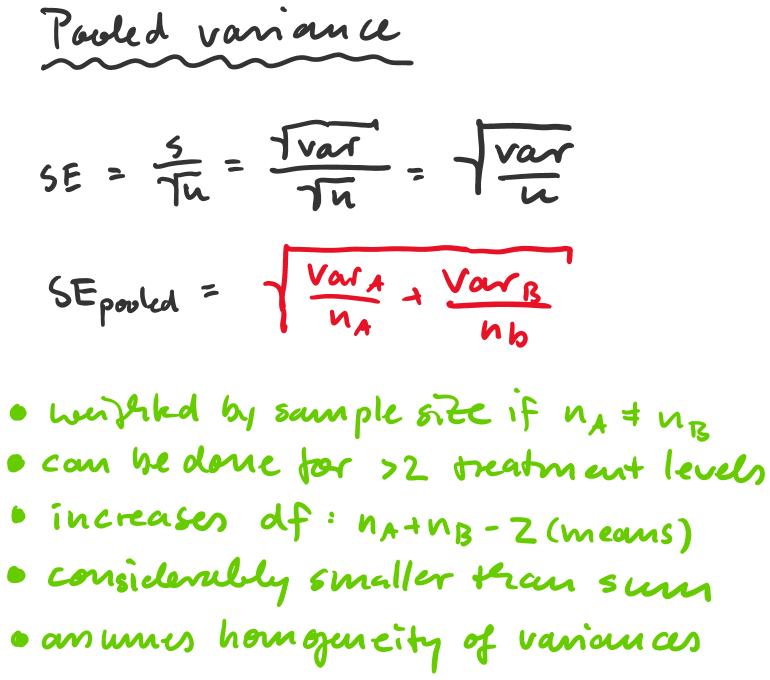 Pooled variance
SE = s/√n = √var/√n = √(var/n)
SEpooled = √(varA/nA + varB/nb)
• weighted by sample size if nA ≠ nB
• can be done for >2 treatment levels
• increases df: nA+nB-2 (means)
• considerably smaller than sum
• assumes homogeneity of variances